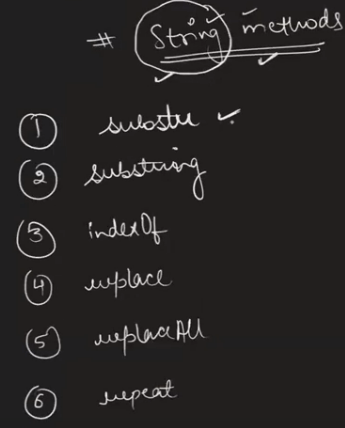 # String methods
1 substr
2 substring
3 indexOf
4 replace
5 replaceAll
6 repeat